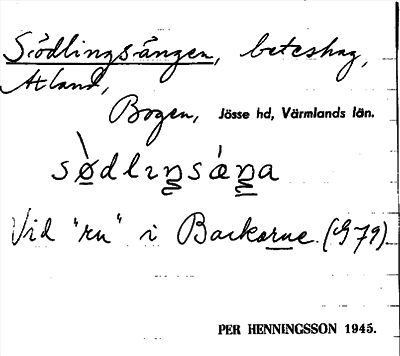 Södlingsängen, beteshag,
Atland,
Bogen, Jösse hd, Värmlands län.
Vid "rn" i Backarne. (G79)
PER HENNINGSSON 1945.